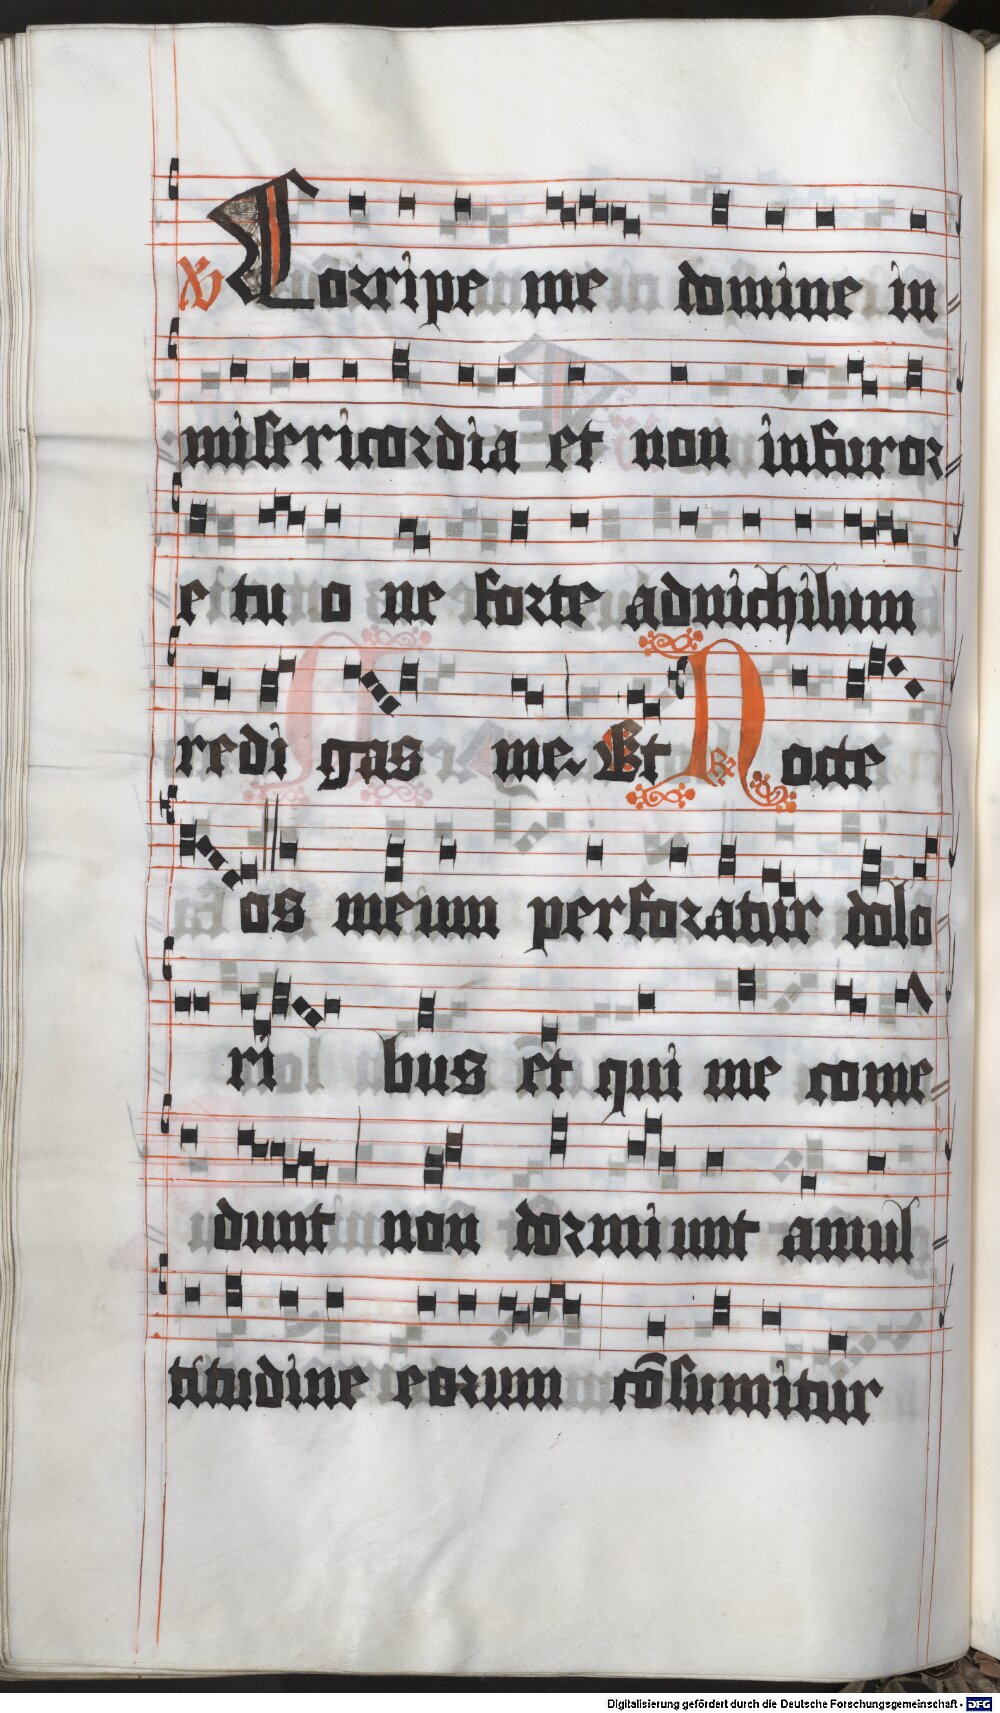 V Corripe me domine in
misericordia et non infuror
e tu o ne forte adnichilum
redi gas me. Et R Nocte
os meum perforatur dolo
ri bus et qui me come
dunt non dormiunt amul
titudine eorum cōsumitur
Digitalisierung gefördert durch die Deutsche Forschungsgemeinschaft - DFG